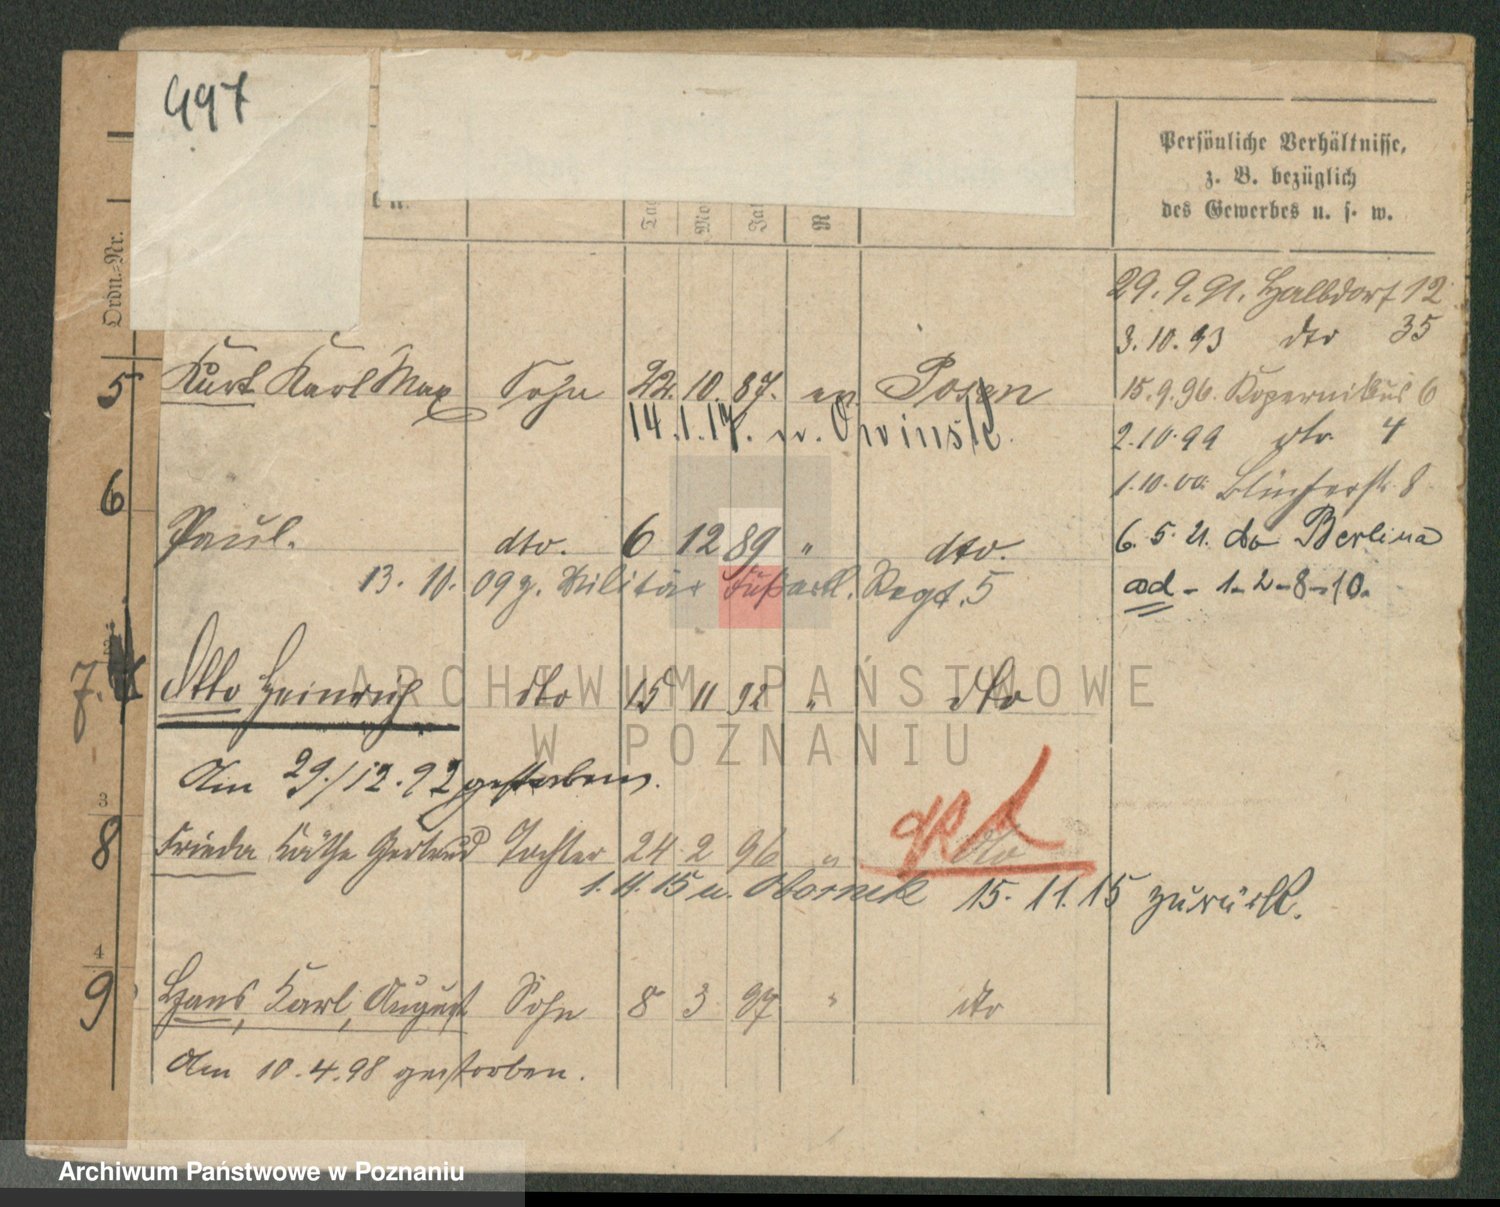 497
Persönliche Verhältnisse,
z. B. bezüglich
des Gewerbes u. s. w.
Ordn.-Nr.
29.9.91. Halbdorf 12
3.10.93 dto 35
5 Kurt Karl Max Sohn 22. 10. 87. ev. Posen
15.9.96. Kopernikus 6
14.1.17. n. Owinsk.
2.10.99 dto. 4
6
1.10.00. Blücherstr. 8
Paul. dto. 6 12 89 " dto.
6. 5. 21. do Berlin
13. 10. 09 z. Militär Fußartl. Regt. 5
ad - 1-2-8-10.
7. Otto Heinrich dto 15 11 92 " dto
Am 29./12.92 gestorben.
3
8 Frieda Käthe Gertrud Tochter 24 2 96 " dto
1.11.15 n. Obornik 15. 11. 15 zurück.
4
9 Hans, Karl, August Sohn 8 3 97 " dto
Am 10.4.98 gestorben.
ARCHIWUM PAŃSTWOWE
W POZNANIU
Archiwum Państwowe w Poznaniu